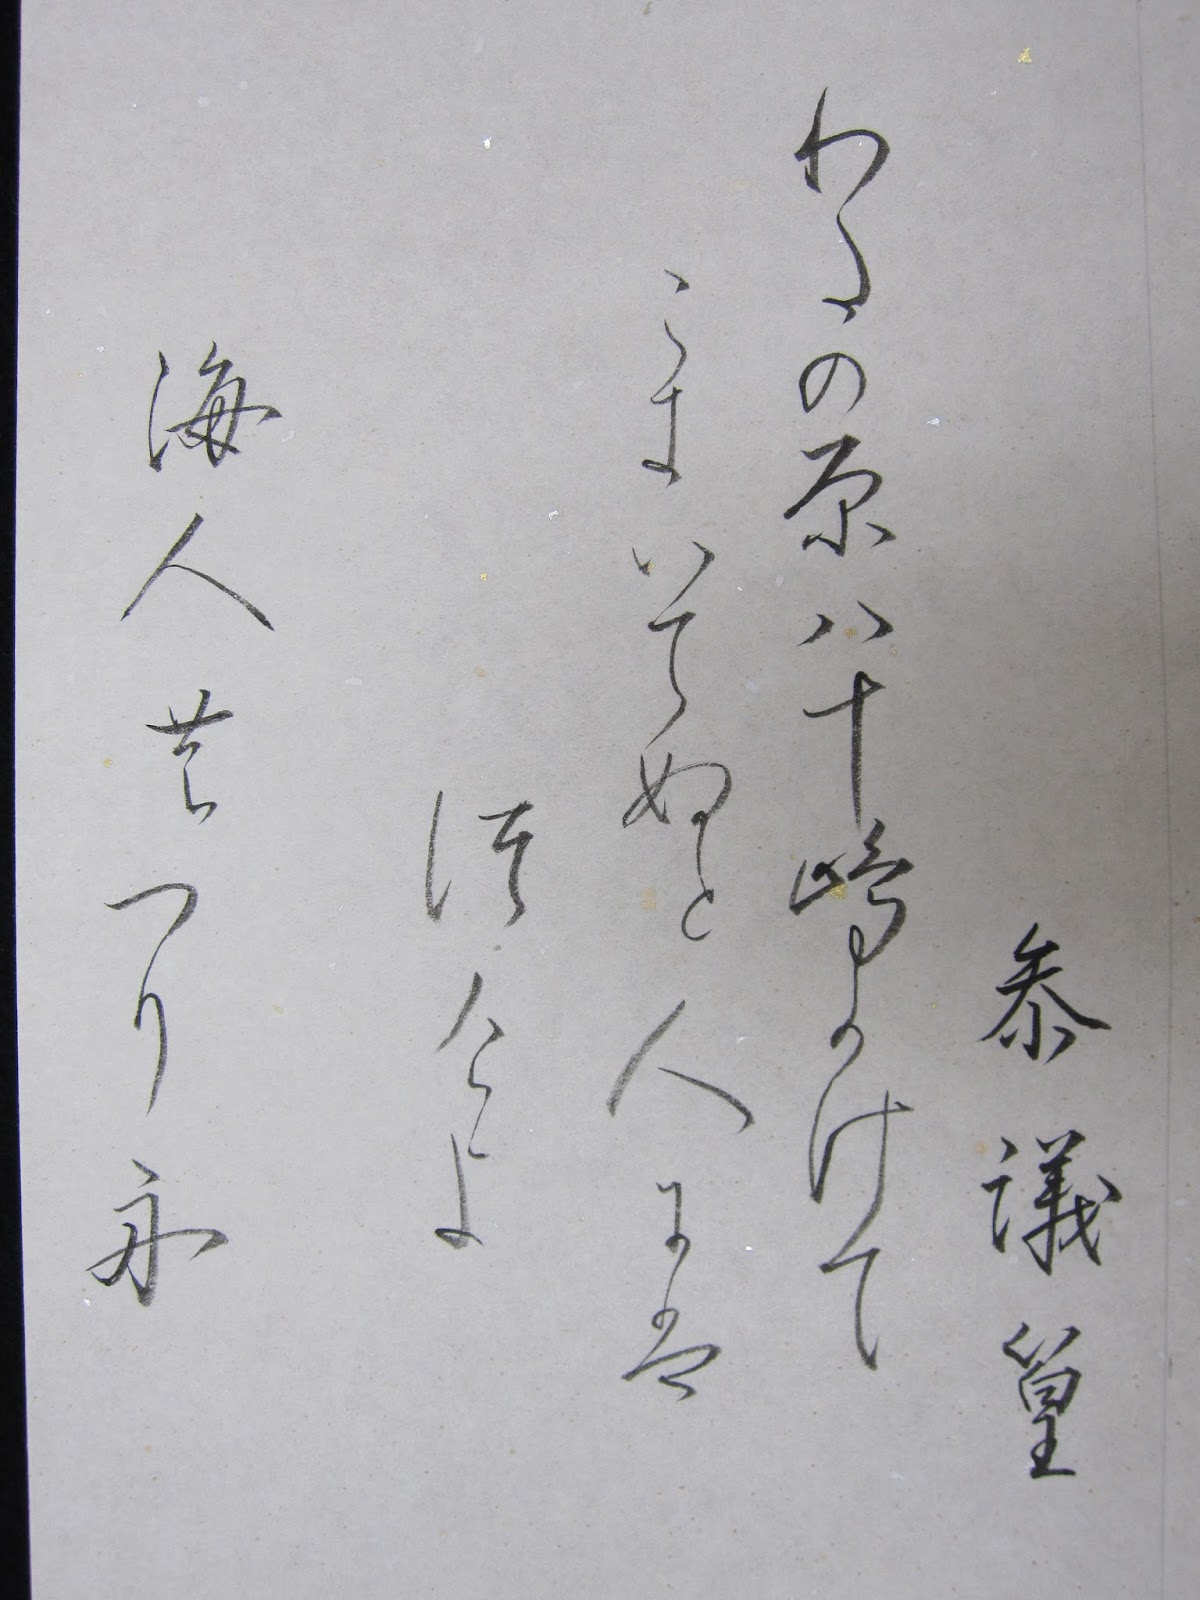 参議篁
わたの原八十嶋かけて
こきいてぬと人には
つけよ
海人のつり舟